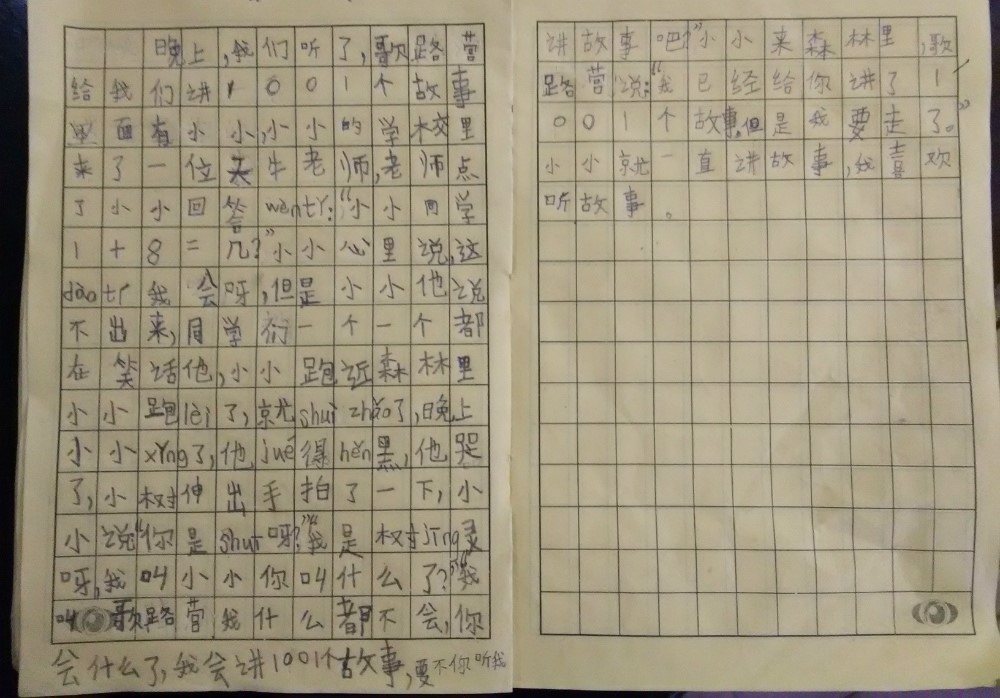 晚上,我们听了,歌路营
给我们讲1001个故事
里面有小小,小小的学校里
来了一位夫牛老师,老师点
了小小回答wèntí:“小小同学
1+8=几?”小小心里说,这
dào tí我会呀,但是小小他说
不出来,同学们一个一个都
在笑话他,小小跑近森林里
小小跑lèi了,就shuì zháo了,晚上
小小xǐng了,他jué得hěn黑,他哭
了,小树伸出手拍了一下,小
小说“你是shuí呀?”“我是树jīng灵
呀,我叫小小你叫什么了?”“我
叫歌路营我什么都不会,你
会什么了,我会讲1001个故事,要不你听我
讲故事吧?”小小来森林里,歌
路营说:“我已经给你讲了1
001个故事,但是我要走了。”
小小就一直讲故事,我喜欢
听故事。